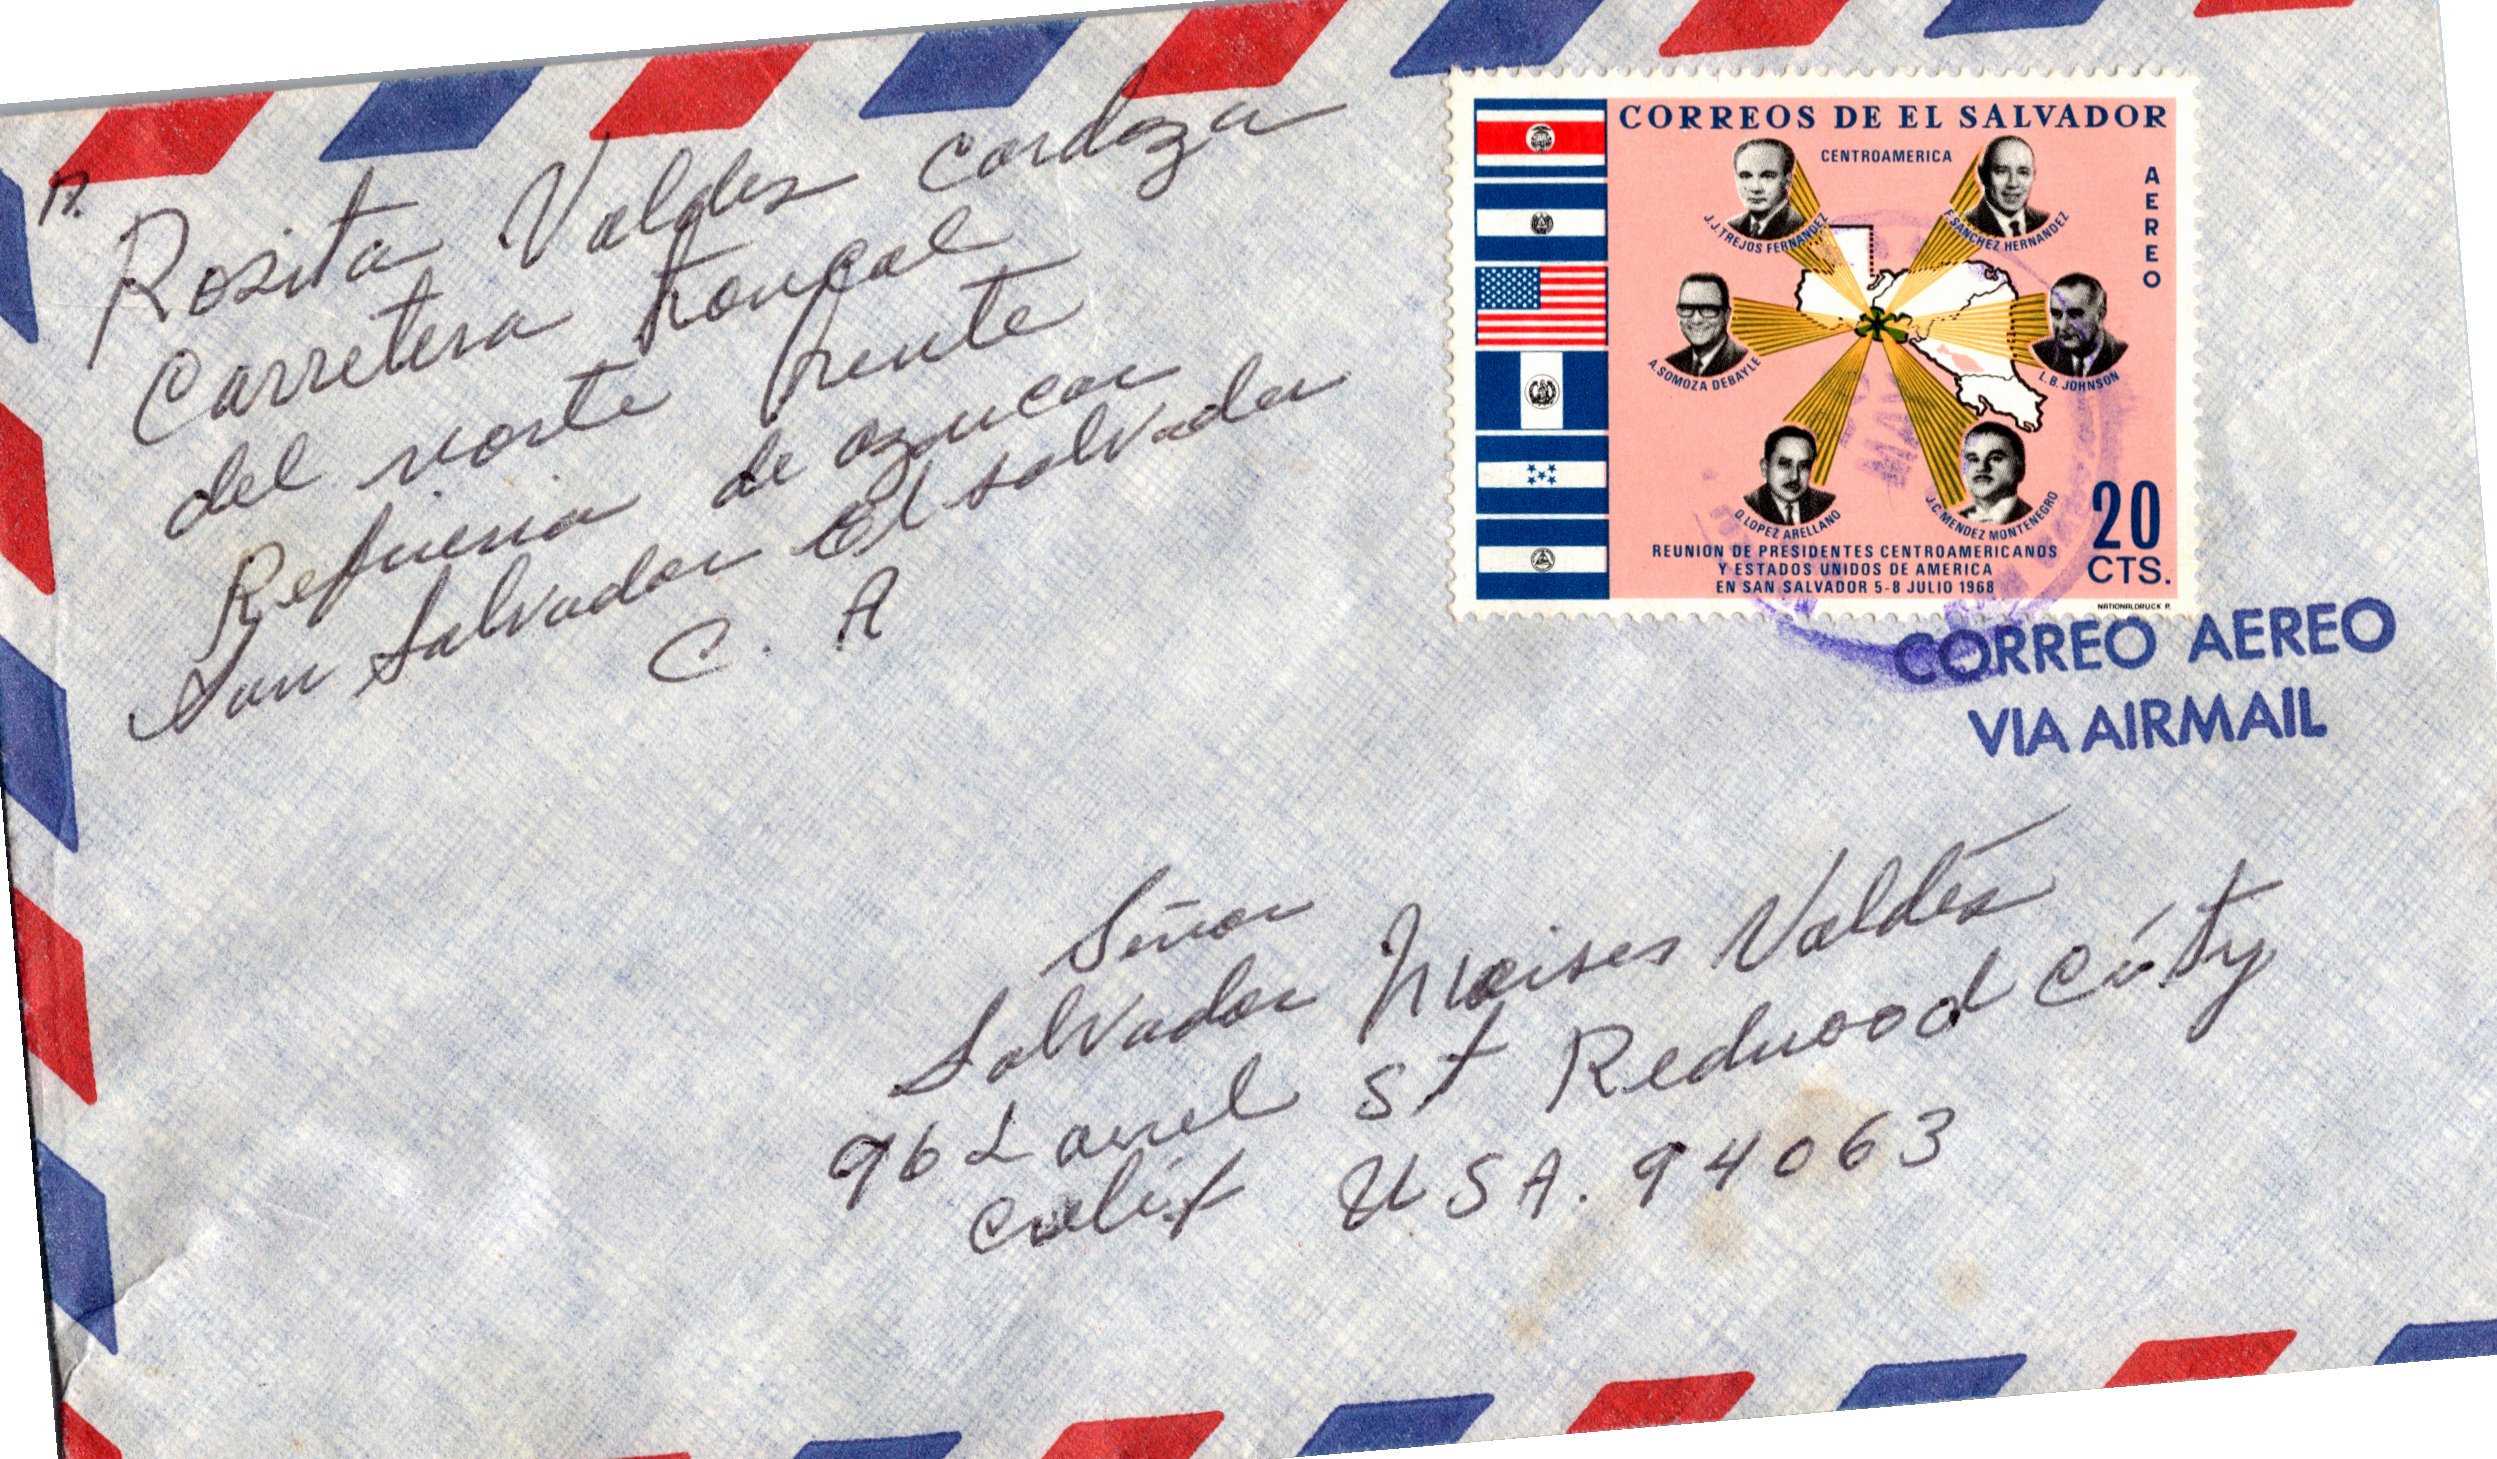 R.
Rosita Valdes Cardoza
Carretera troncal
del norte frente
Refineria de azucar
San Salvador El salvador
C. A
CORREOS DE EL SALVADOR
CENTROAMERICA
AEREO
J.J. TREJOS FERNANDEZ
F. SANCHEZ HERNANDEZ
A. SOMOZA DEBAYLE
L.B. JOHNSON
O. LOPEZ ARELLANO
J.C. MENDEZ MONTENEGRO
REUNION DE PRESIDENTES CENTROAMERICANOS
Y ESTADOS UNIDOS DE AMERICA
EN SAN SALVADOR 5-8 JULIO 1968
20
CTS.
NATIONALDRUCK P.
CORREO AEREO
VIA AIRMAIL
Señor
Salvador Moises Valdés
96 Laurel St Redwood City
Calif USA. 94063